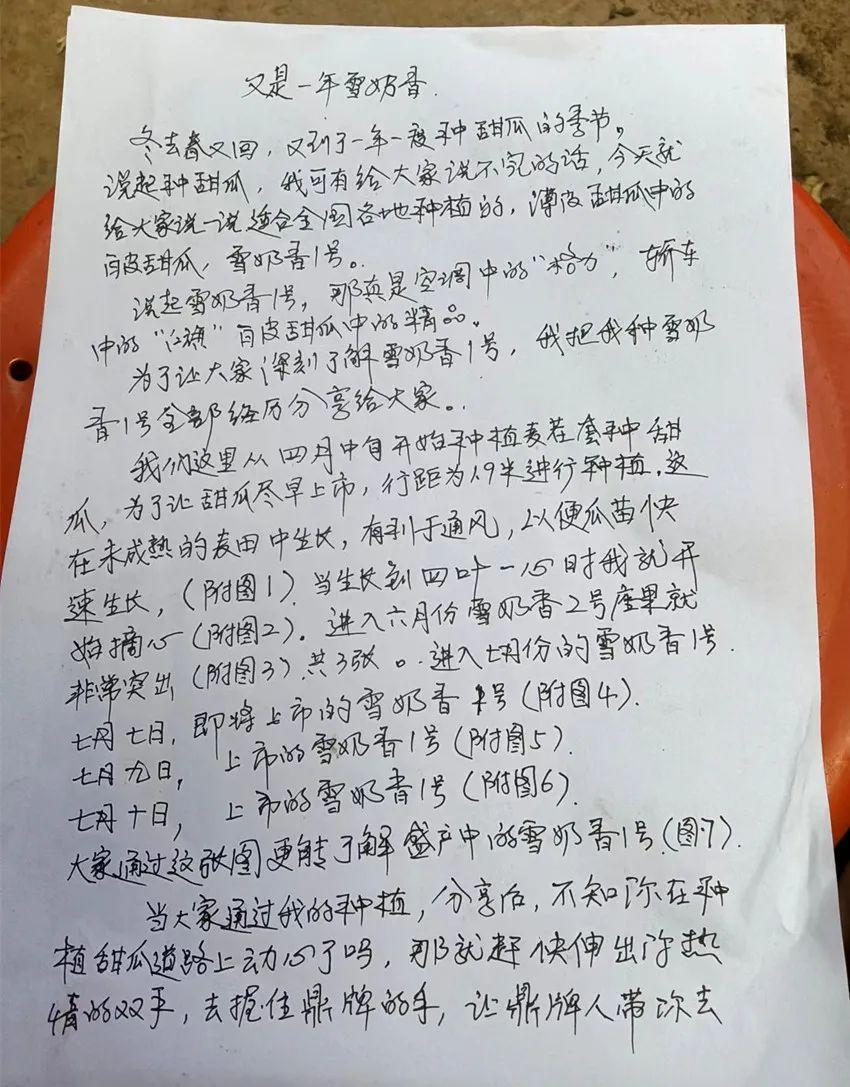 又是一年雪奶香.
冬去春又回,又到了一年一度种甜瓜的季节。
说起种甜瓜,我可有给大家说不完的话,今天就
给大家说一说适合全国各地种植的,薄皮甜瓜中的
白皮甜瓜,雪奶香1号。
说起雪奶香1号,那真是空调中的“格力”,轿车
中的“红旗”白皮甜瓜中的精品。
为了让大家深刻了解雪奶香1号,我把我种雪奶
香1号全部经历分享给大家。
我们这里从四月中旬开始种植麦茬套种甜
瓜,为了让甜瓜尽早上市,行距为1.9米进行种植.这
在未成熟的麦田中生长,有利于通风,以便瓜苗快
速生长,(附图1).当生长到四叶一心时我就开
始摘心(附图2).进入六月份雪奶香2号座果就
非常突出(附图3).共3张。进入七月份的雪奶香1号.
七月七日,即将上市的雪奶香1号(附图4).
七月九日,上市的雪奶香1号(附图5).
七月十日,上市的雪奶香1号(附图6).
大家通过这张图更能了解盛产中的雪奶香1号.(图7).
当大家通过我的种植,分享后,不知你在种
植甜瓜道路上动心了吗,那就赶快伸出你热
情的双手,去握住鼎牌的手,让鼎牌人带你去